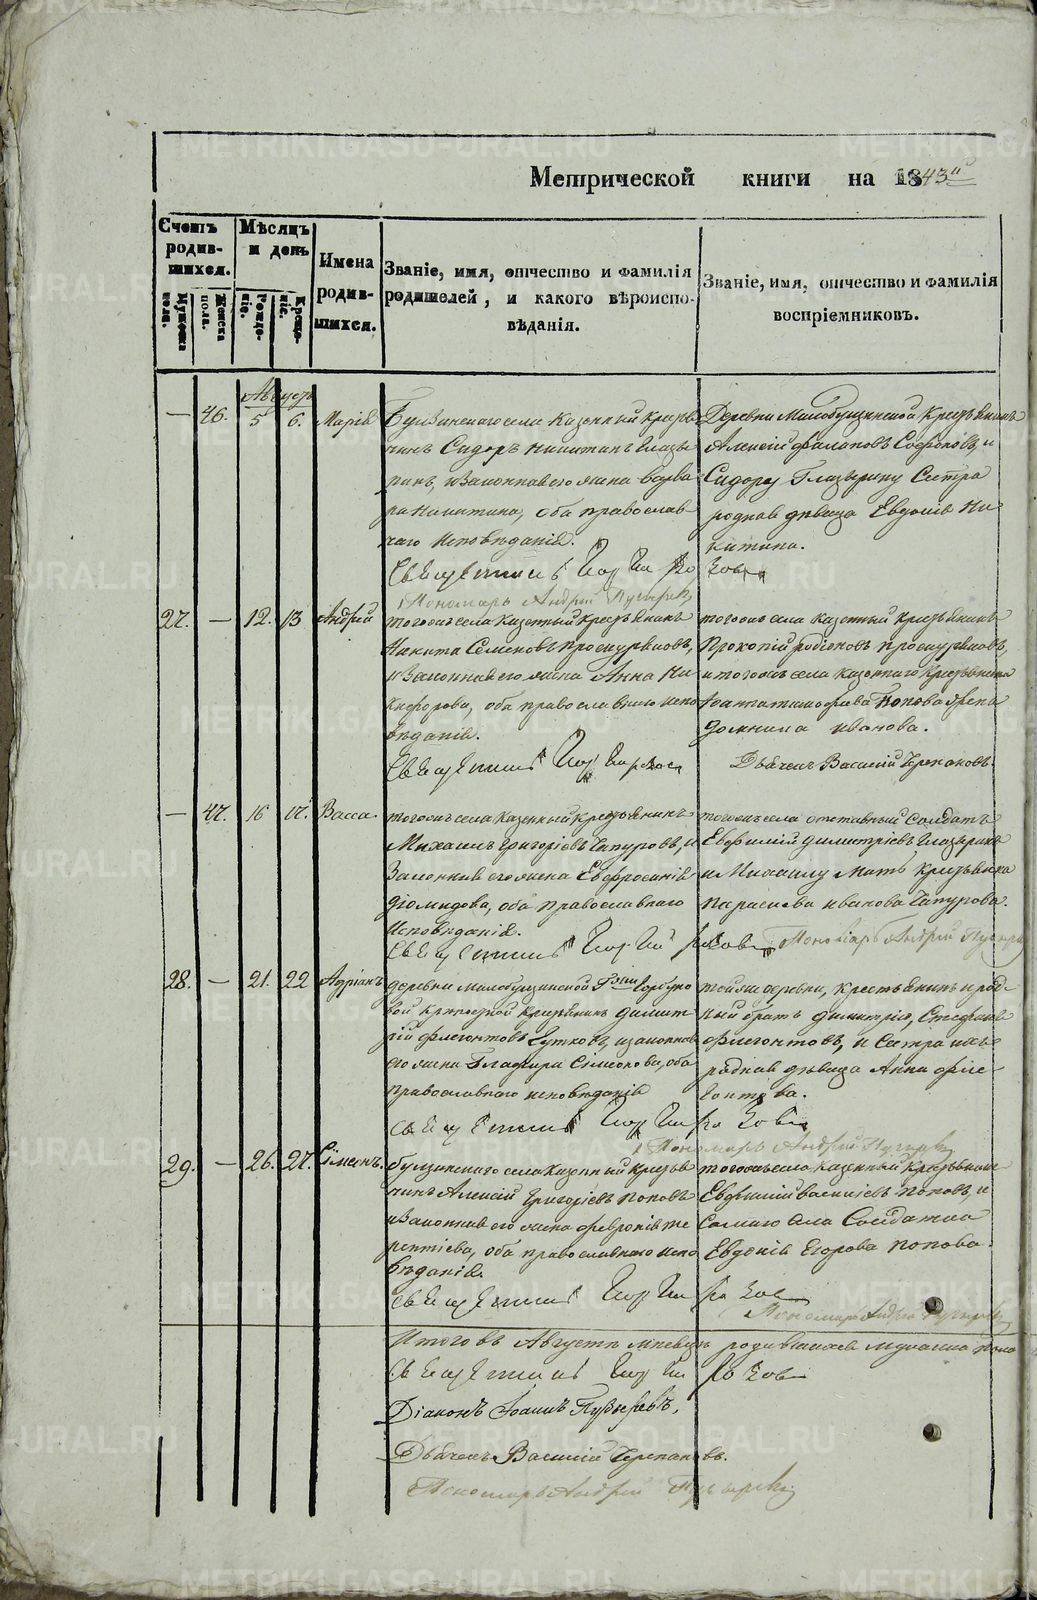 Метрической книги на 1843й
Счетъ родив-
шихся.
Мужеска пола.
Женска пола.
Мѣсяцъ и день
Рожде-
ніе.
Креще-
ніе.
Имена
родив-
шихся.
Званіе, имя, отчество и фамилія
родителей, и какого вѣроиспо-
вѣданія.
Званіе, имя, отчество и фамилія
воспріемниковъ.
Августъ
— 46. 5 6. Марія
Булзинскаго села Казенный Кресть
янинъ Сидоръ Никитинъ Глазы
ринъ, и Законная его жена Варва
ра Никитина, оба православ
наго исповѣданія.
Священникъ Георгій
Деревни Малобулзинской Крестьянинъ
Алексій Софоновъ, и
Сидору Глазырину Сестра
родная дѣвица Евдокія Ни
китина.
Пономарь Андрей
27. — 12. 13 Андрей
того же села Казенный Крестьянинъ
Никита Семеновъ Проскуряковъ,
и Законная его жена Анна Ни
кифорова, оба православнаго испо
вѣданія.
Священникъ Георгій
того же села Казенный Крестьянинъ
Прокопій Родіоновъ Проскуряковъ,
и того же села Казеннаго Крестьянина
Попова жена
Домника Иванова.
Дьячекъ Василій Черпановъ.
— 47. 16 17. Васса.
того же села Казенный Крестьянинъ
Михаилъ Григорьевъ Чапуровъ, и
Законная его жена Евфросинія
Діомидова, оба православнаго
Исповѣданія.
Священникъ Георгій
того же села отставный Солдатъ
Евфимій Димитріевъ Глазыринъ
и Михаилу Мать Крестьянка
Параскева Иванова Чапурова.
Пономарь Андрей
28. — 21. 22 Адріанъ
деревни Малобулзинской
Крестьянинъ Димит
рій Флегонтовъ, и законная
его жена Глафира Симеонова, оба
православнаго исповѣданія
Священникъ Георгій
той же деревни, Крестьянинъ род-
ный братъ Димитрія, Стефанъ
Флегонтовъ, и Сестра ихъ
родная дѣвица Анна Фле-
гонтова.
Пономарь Андрей
29. — 26. 27. Сімеонъ.
булзинскаго села Казенный Кресть
янинъ Алексій Григорьевъ Поповъ
и Законная его жена Февронія Те
рентіева, оба православнаго испо
вѣданія.
Священникъ Георгій
того же села Казенный Крестьянинъ
Евфимій Васильевъ Поповъ, и
Села Солдатка
Евдокія Егорова Попова.
Пономарь Андрей
Итого въ Августѣ мѣсяцѣ родившихся мужеска пола
Священникъ Георгій
Діаконъ Іоаннъ Пузыревъ,
Дьячекъ Василій Черпановъ.
Пономарь Андрей
METRIKI.GASO-URAL.RU